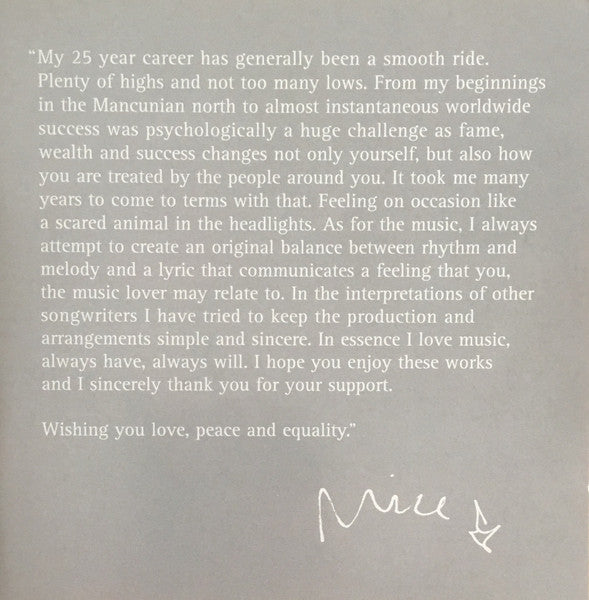 “My 25 year career has generally been a smooth ride.
Plenty of highs and not too many lows. From my beginnings
in the Mancunian north to almost instantaneous worldwide
success was psychologically a huge challenge as fame,
wealth and success changes not only yourself, but also how
you are treated by the people around you. It took me many
years to come to terms with that. Feeling on occasion like
a scared animal in the headlights. As for the music, I always
attempt to create an original balance between rhythm and
melody and a lyric that communicates a feeling that you,
the music lover may relate to. In the interpretations of other
songwriters I have tried to keep the production and
arrangements simple and sincere. In essence I love music,
always have, always will. I hope you enjoy these works
and I sincerely thank you for your support.
Wishing you love, peace and equality.”